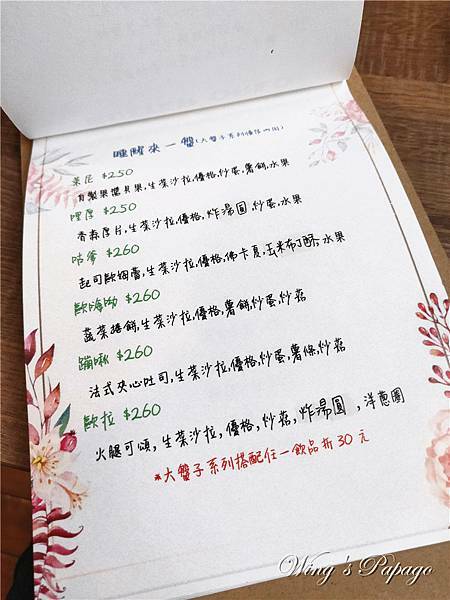 睡醒來一盤(大盤子系列優惠以圖)
菜尼 $250
自製果醬貝果,生菜沙拉,優格,炒蛋,薯餅,水果
哩厚 $250
香蒜厚片,生菜沙拉,優格,炸湯圓,炒蛋,水果
咕爹 $260
起司歐姆蕾,生菜沙拉,優格,佛卡夏,玉米布丁酥,水果
歐嗨呦 $260
蔬菜捲餅,生菜沙拉,優格,薯餅,炒蛋,炒菇
蹦啾 $260
法式夾心吐司,生菜沙拉,優格,炒蛋,薯條,炒菇
歐拉 $260
火腿可頌,生菜沙拉,優格,炒菇,炸湯圓,洋蔥圈
*大盤子系列搭配任一飲品折30元
Wing's Papago